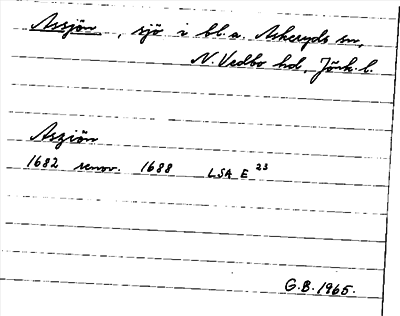 Assjön, sjö i bl.a. Askeryds sn,
N. Vedbo hd, Jönk. l.
Assiön
1682 renov. 1688 LSA E 23
G.B. 1965.